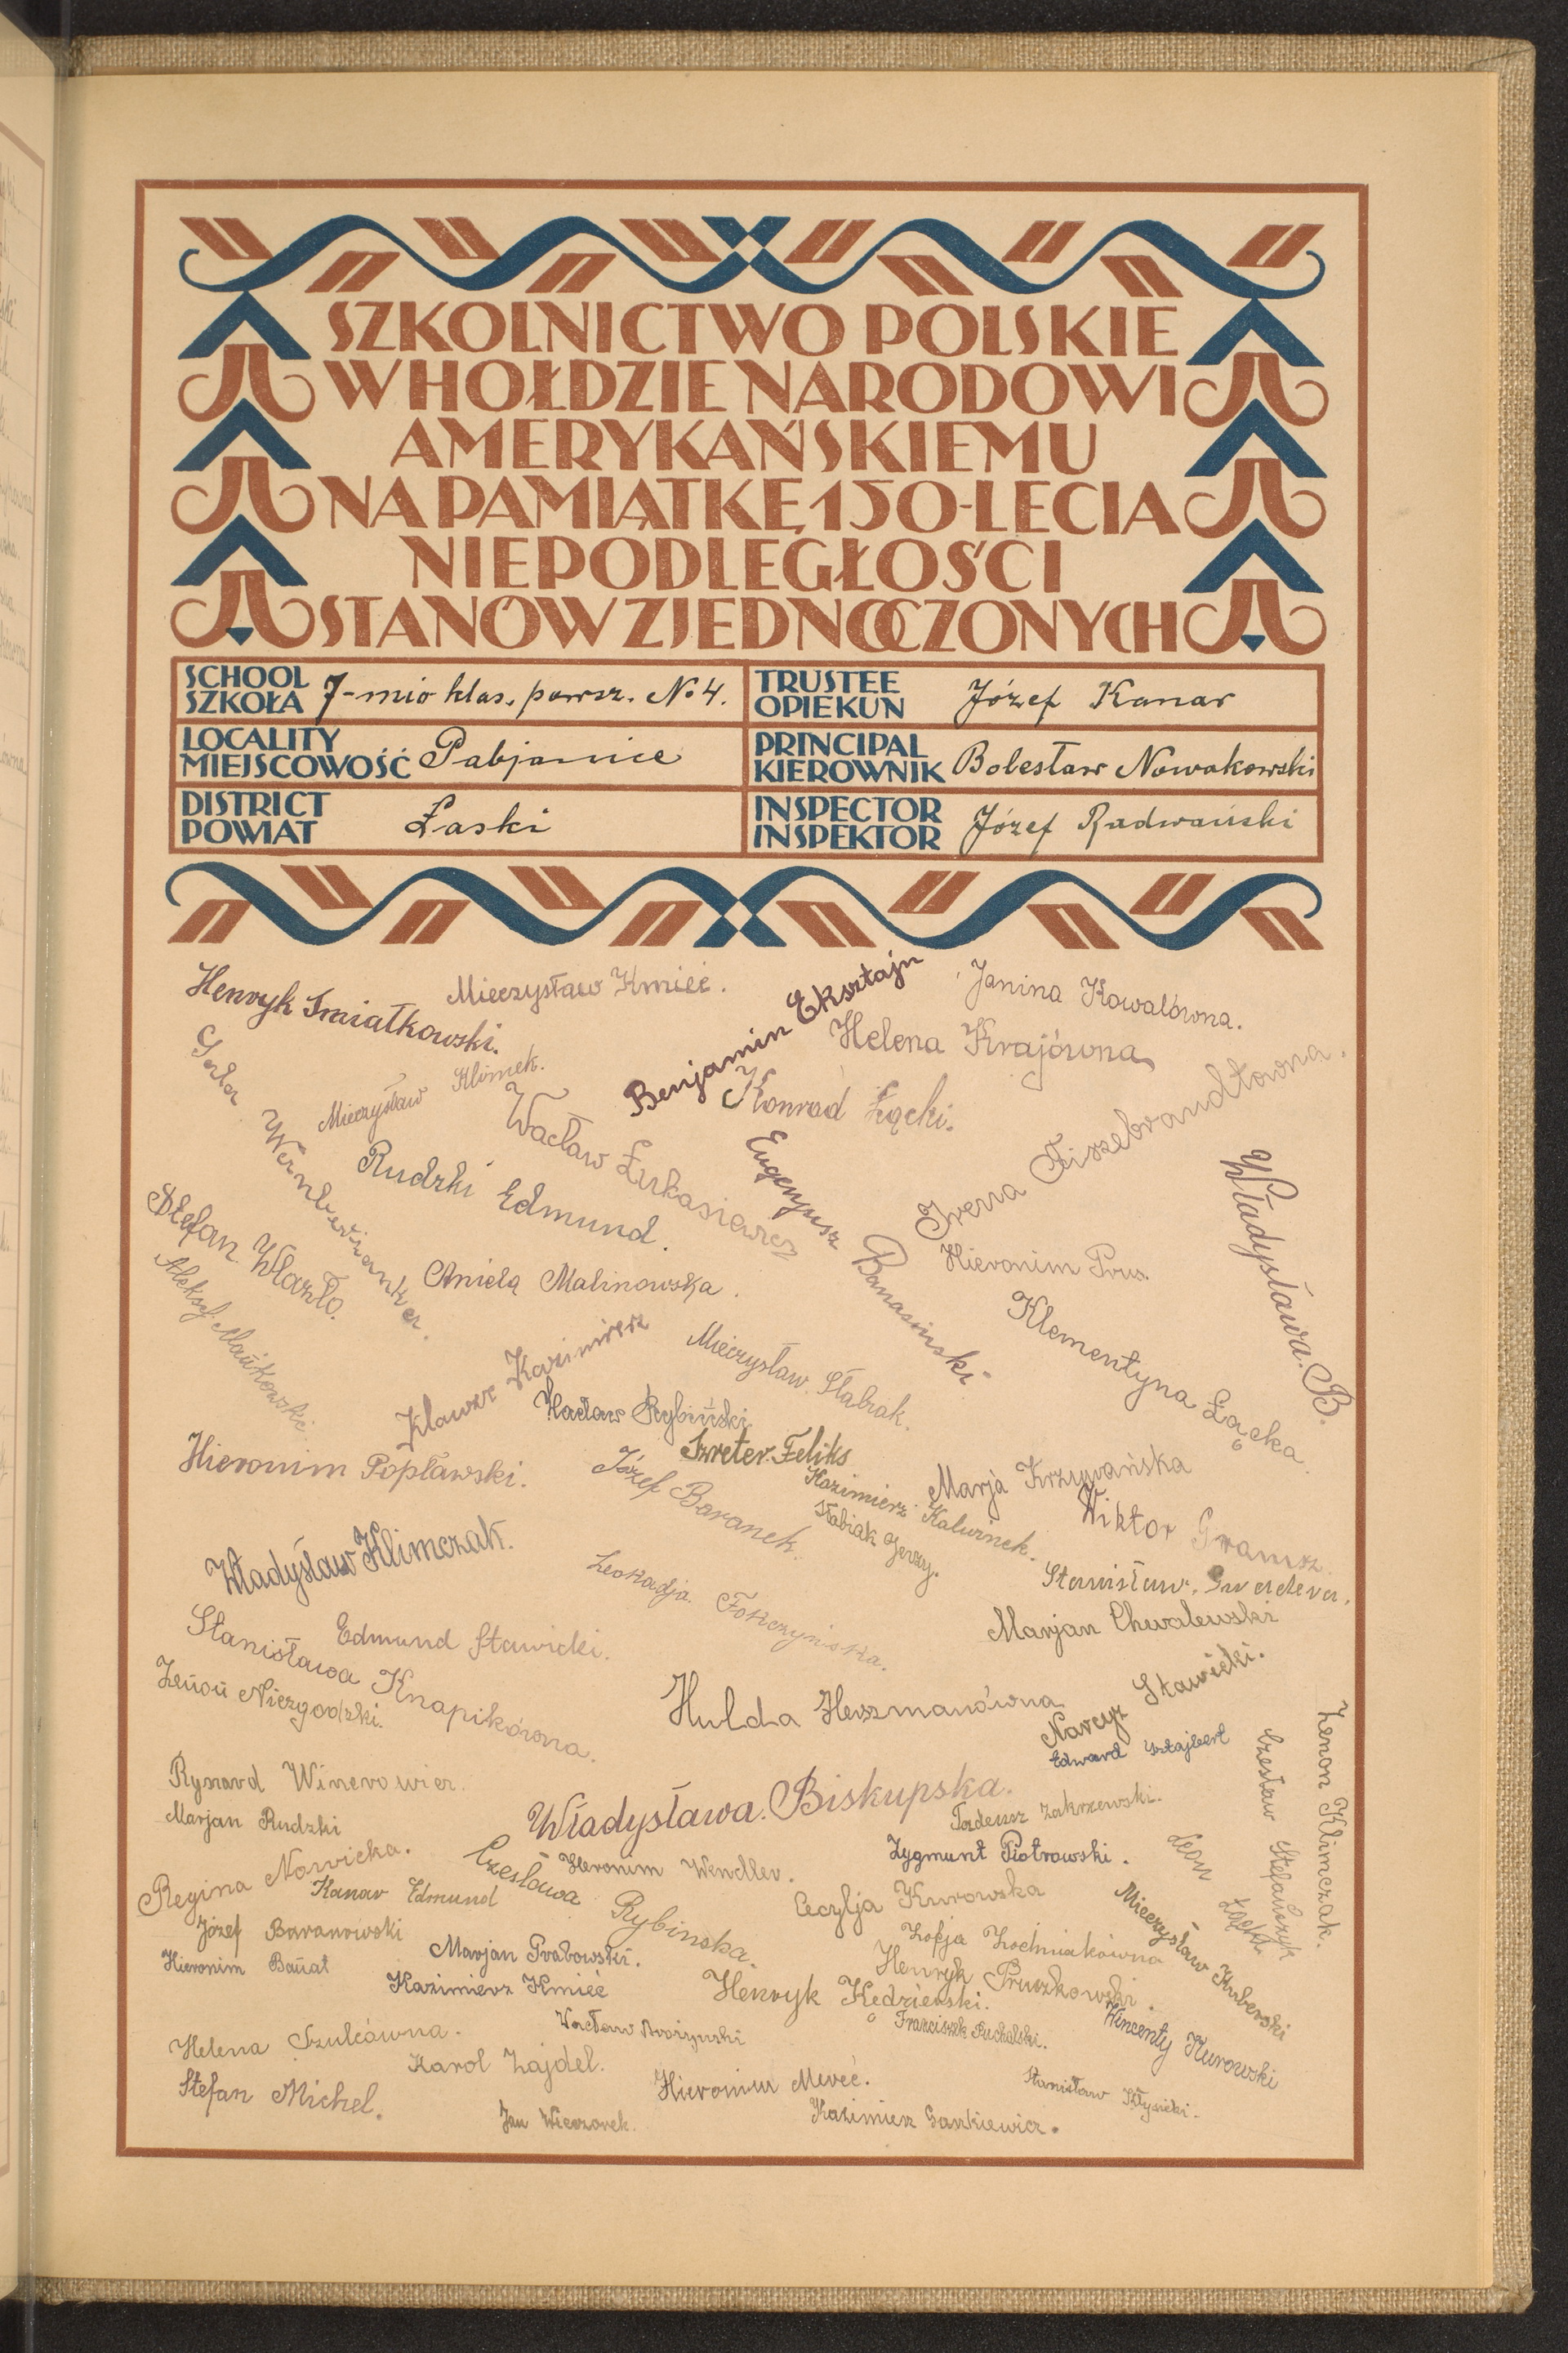 SZKOLNICTWO POLSKIE
W HOŁDZIE NARODOWI
AMERYKAŃSKIEMU
NA PAMIĄTKĘ 150-LECIA
NIEPODLEGŁOŚCI
STANÓW ZJEDNOCZONYCH
SCHOOL
SZKOŁA 7-mio klas. powsz. No 4.
TRUSTEE
OPIEKUN Józef Kanar
LOCALITY
MIEJSCOWOŚĆ Pabjanice
PRINCIPAL
KIEROWNIK Bolesław Nowakowski
DISTRICT
POWIAT Łaski
INSPECTOR
INSPEKTOR Józef Radwański
Henryk Śmiałkowski.
Mieczysław Kmieć.
Benjamin Eksztajn
Janina Kowalówna.
Helena Krajówna
Mieczysław Klimek.
Konrad Łącki.
Wacław Łukasiewicz
Rudzki Edmund.
Eugenjusz Banasiński
Irena Fiszebrandtówna.
Władysława. B.
Stefan Wlazło.
Hieronim Prus.
Aniela Malinowska.
Klementyna Łącka.
Klauze Kazimierz
Mieczysław Stabrak.
Wacław Rybiński
Szreter Feliks
Hieronim Popławski.
Józef Baranek.
Kazimierz Kaluinek.
Marja Krzywańska
Stabiak Jerzy.
Wiktor
Władysław Klimczak.
Leokadja
Stanisław.
Marjan Chwalewski
Stanisława Knapikówna.
Edmund Stawicki.
Zenon Niezgodzki.
Hulda Herszmanówna
Narcyz Stawicki.
Edward Sztajbert
Zenon Klimczak.
Czesław Stefańczyk
Ryszard Winerowicz.
Marjan Rudzki
Władysława. Biskupska.
Tadeusz Zakrzewski.
Zygmunt Piotrowski.
Leon Łącki
Regina Nowicka.
Kanar Edmund
Czesława Rybinska.
Hieronim Wendler.
Cecylja Kurowska
Mieczysław Kuberski
Józef Baranowski
Hieronim Banat
Marjan Grabowski.
Zofja Zochniakówna
Henryk Pruszkowski.
Kazimierz Kmieć
Henryk Kędzierski.
Franciszek Puchalski.
Wincenty Kurowski
Helena Szulcówna.
Wacław
Karol Zajdel.
Stefan Michel.
Hieronim
Stanisław
Jan Wieczorek.
Kazimierz Sankiewicz.